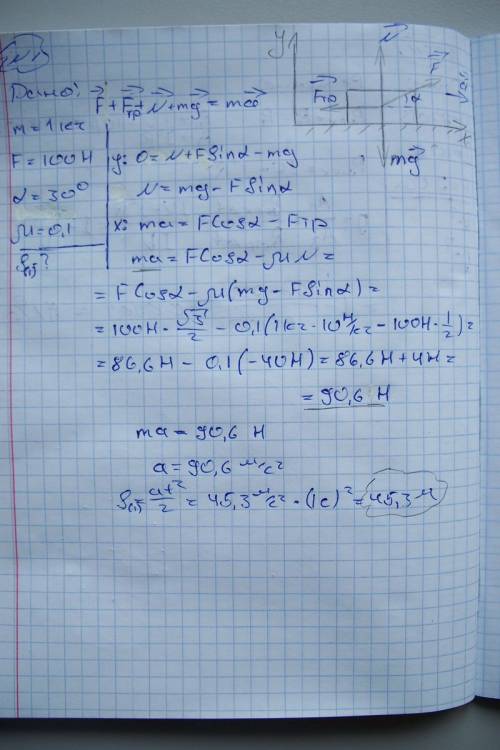 №1
Дано: F⃗ + F⃗тр + N⃗ + mg⃗ = ma⃗
m = 1 кг
F = 100 Н
α = 30°
μ = 0,1
y: 0 = N + F sinα - mg
N = mg - F sinα
x: ma = F cosα - Fтр
ma = F cosα - μN =
= F cosα - μ(mg - F sinα) =
= 100Н · √3/2 - 0,1(1кг · 10 Н/кг - 100Н · 1/2) =
= 86,6 Н - 0,1(-40Н) = 86,6 Н + 4Н =
= 90,6 Н
ma = 90,6 Н
a = 90,6 м/с²
= at²/2 = 45,3 м/с² · (1с)² = 45,3 м
y
N⃗
F⃗
F⃗тр
α
a⃗
x
mg⃗